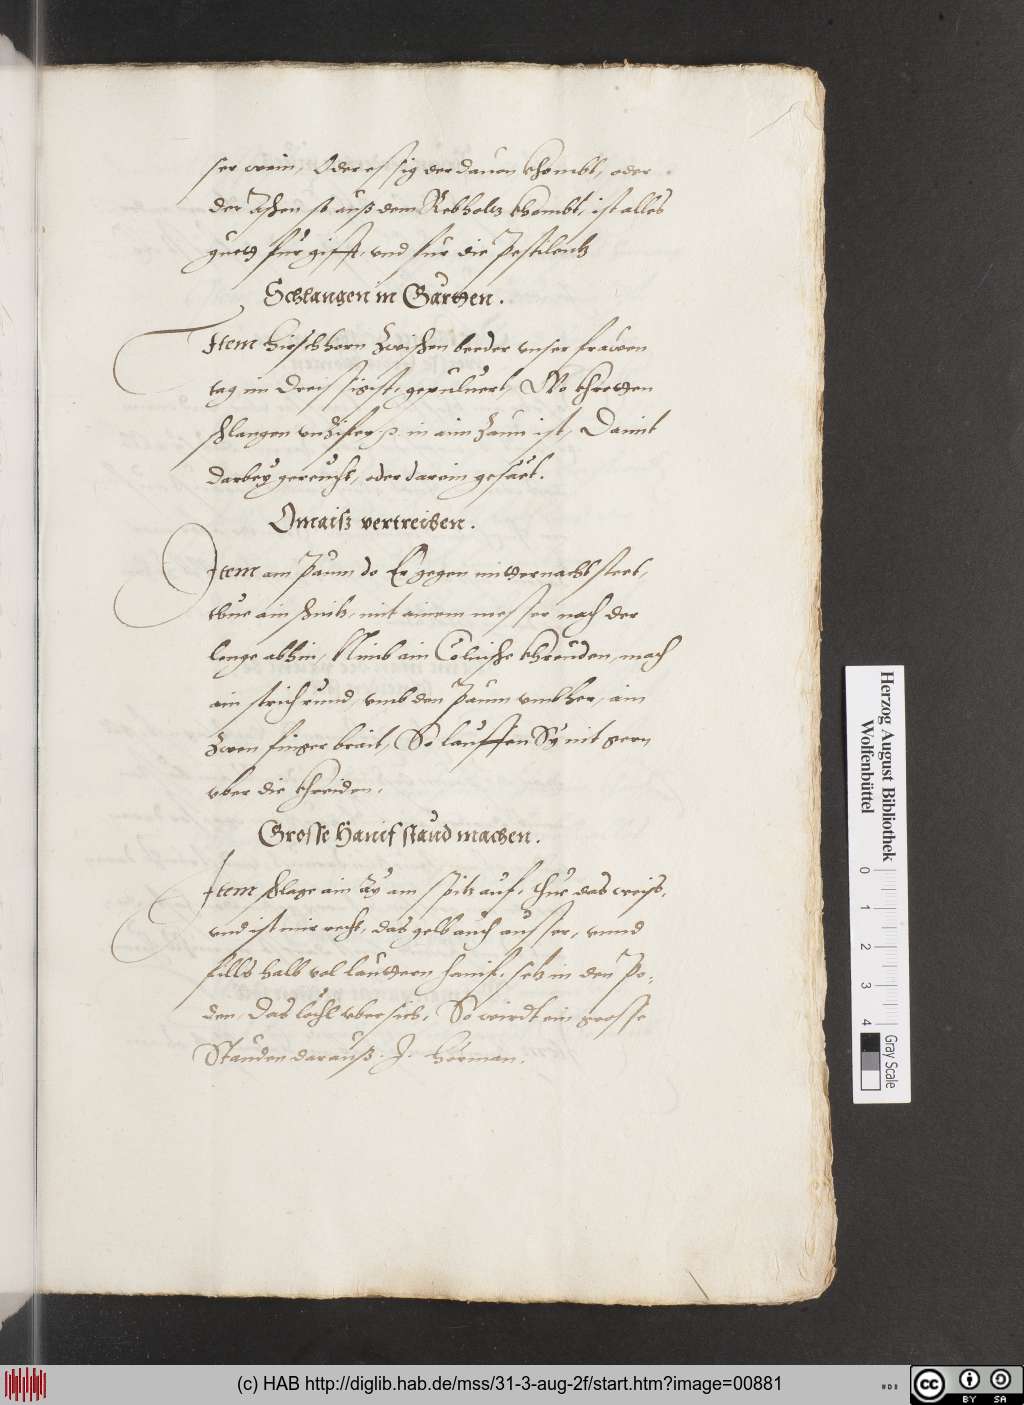 ser wein, Oder essig der dauon khombt, oder
der Aschen so auß dem Rebholtz khombt, ist alles
guett für gifft, vnd für die Pestilentz
Schlangen in Gärtten.
Item Hirschhorn zwischen beeder vnser frawen
tag im Dreissigist, gepuluert, Wo khrotten
schlangen vnzifer in aim Zaun ist, Damit
darbey gereucht, oder darein gesäet.
Omaiß vertreiben.
Item am Paum do Er gegen mitternacht steet,
thue ain schnitz, mit ainem messer nach der
lenge abhin, Nimb ain Colnische khreiden, mach
ain strich rund, vmb den Paum vmbher, ain
zwen finger brait, So lauffen Sy nit gern
vber die khreiden.
Grosse Hanif staud machen.
Item schlage ain Ay am spitz auf, thue das weiß,
vnd ist mir recht, das gelb auch ausser, vnnd
fülls halb vol lauttern hanif, setz in den Po-
den, Das löchl vbersich, So wirdt ein grosse
Stauden darauß. J. Hörman.
Herzog August Bibliothek
Wolfenbüttel
0 1 2 3 4
Gray Scale
(c) HAB http://diglib.hab.de/mss/31-3-aug-2f/start.htm?image=00881
cc BY SA